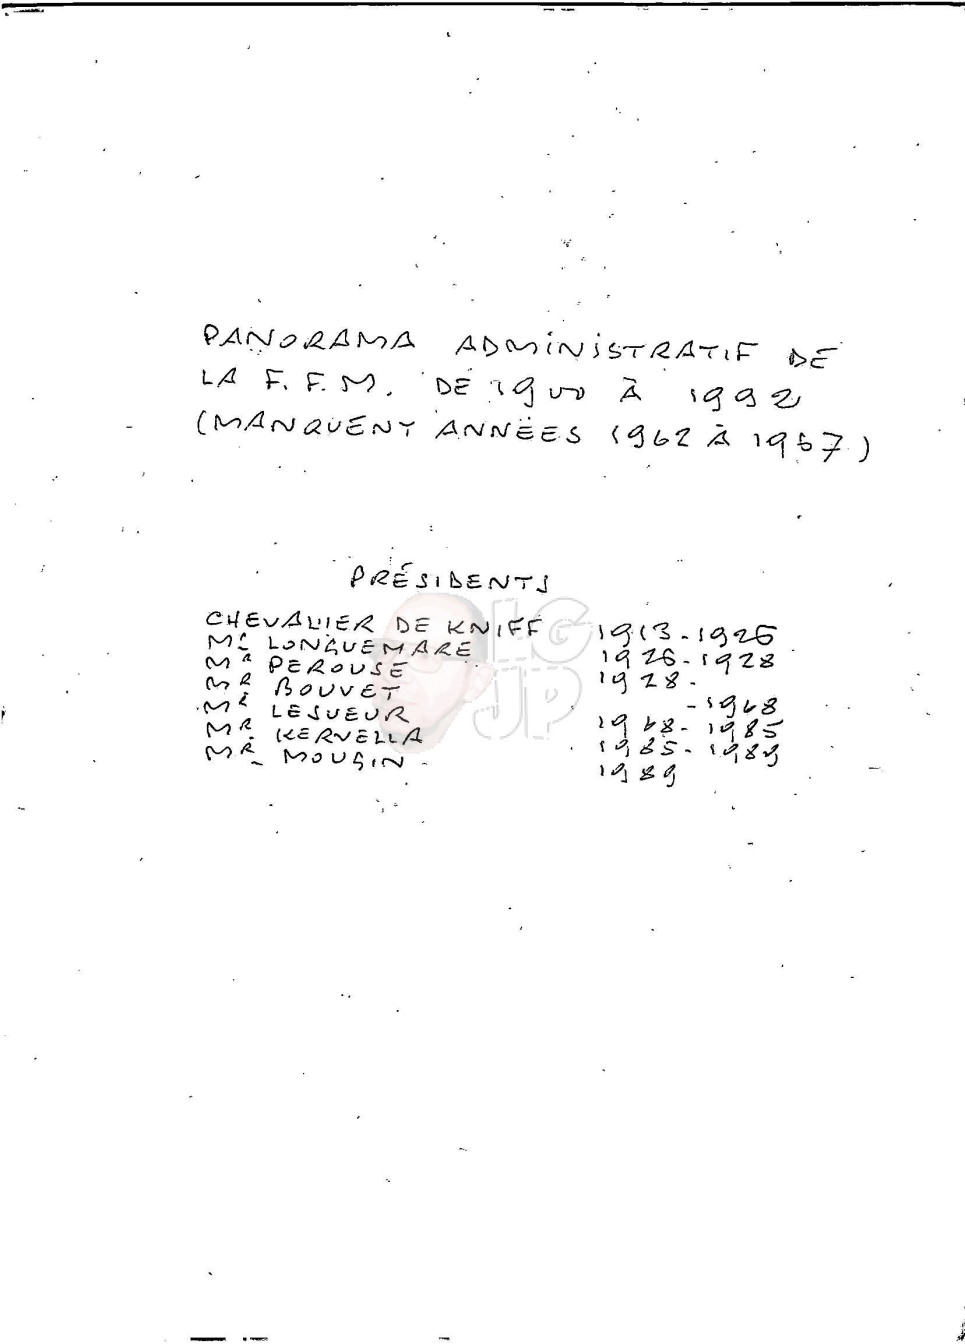 PANORAMA ADMINISTRATIF DE
LA F.F.M. DE 1900 À 1992
(MANQUENT ANNÉES 1962 À 1967)
PRÉSIDENTS
CHEVALIER DE KNIFF 1913-1926
MR LONGUEMARE 1926-1928
MR PEROUSE 1928-
MR BOUVET -1968
MR LESUEUR 1968-1985
MR KERVELLA 1985-1989
MR MOUGIN 1989
LG
JP